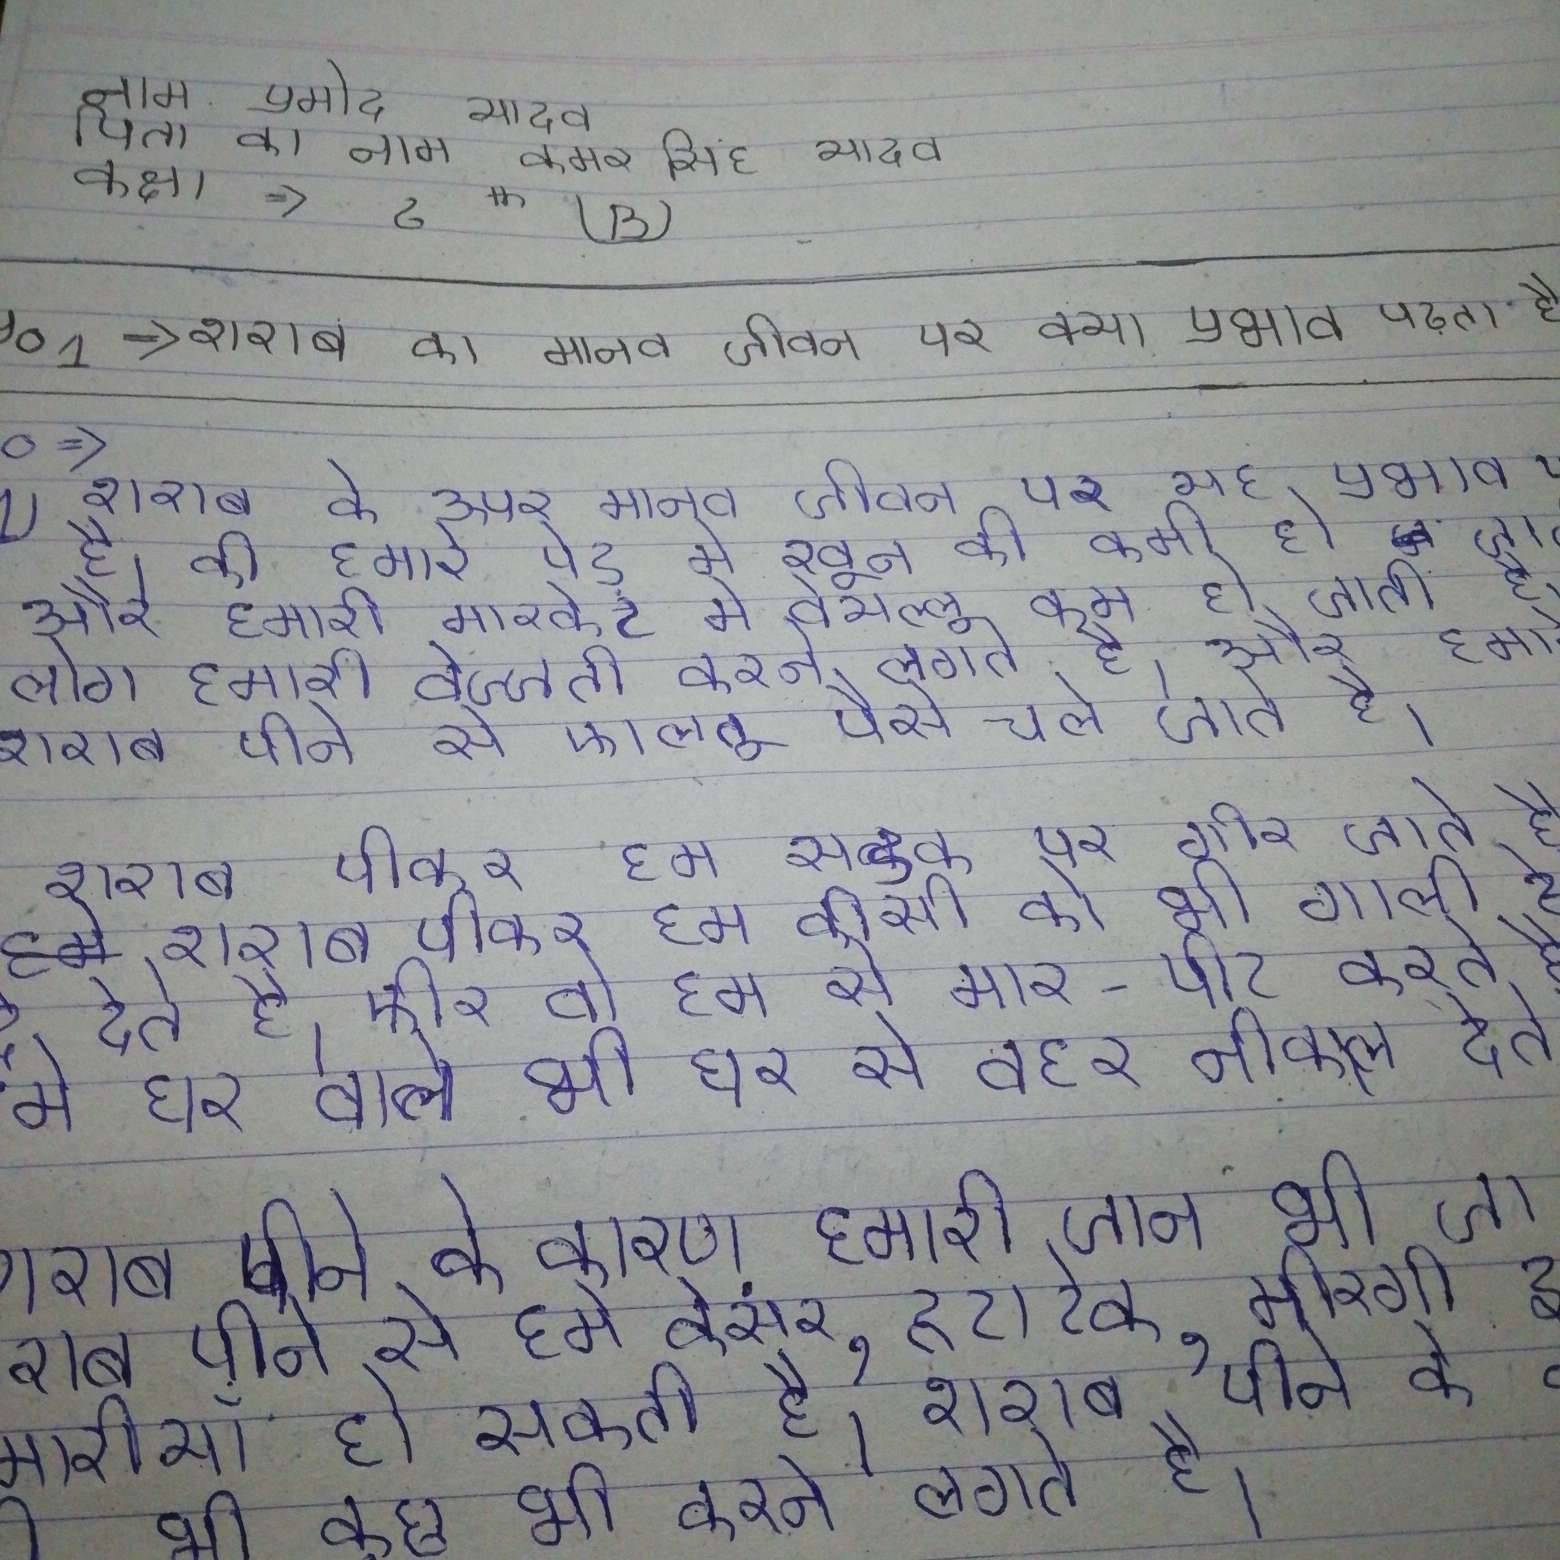 नाम प्रमोद यादव
पिता का नाम कमर सिंह यादव
कक्षा => 8 th (B)
1 => शराब का मानव जीवन पर क्या प्रभाव पढ़ता है
=>
1) शराब के उपर मानव जीवन पर यह प्रभाव
है। की हमारे पेड़ मे खून की कमी हो
और हमारी मारकेट मे वेयल्लू कम हो जाती है
लोग हमारी वेज्जती करने लगते है। और हमारे
शराब पीने से फालतू पैसे चले जाते है।
शराब पीकर हम सड़क पर गीर जाते है
हमे शराब पीकर हम कीसी को भी गाली
देते है। फीर वो हम से मार - पीट करते है
मे घर वाले भी घर से वहर नीकाल देते
शराब पीने के कारण हमारी जान भी जा
राब पीने से हमे केसंर, हटाटेक, मीरगी
मारीयाँ हो सकती है। शराब पीने के
भी कुछ भी करने लगते है।